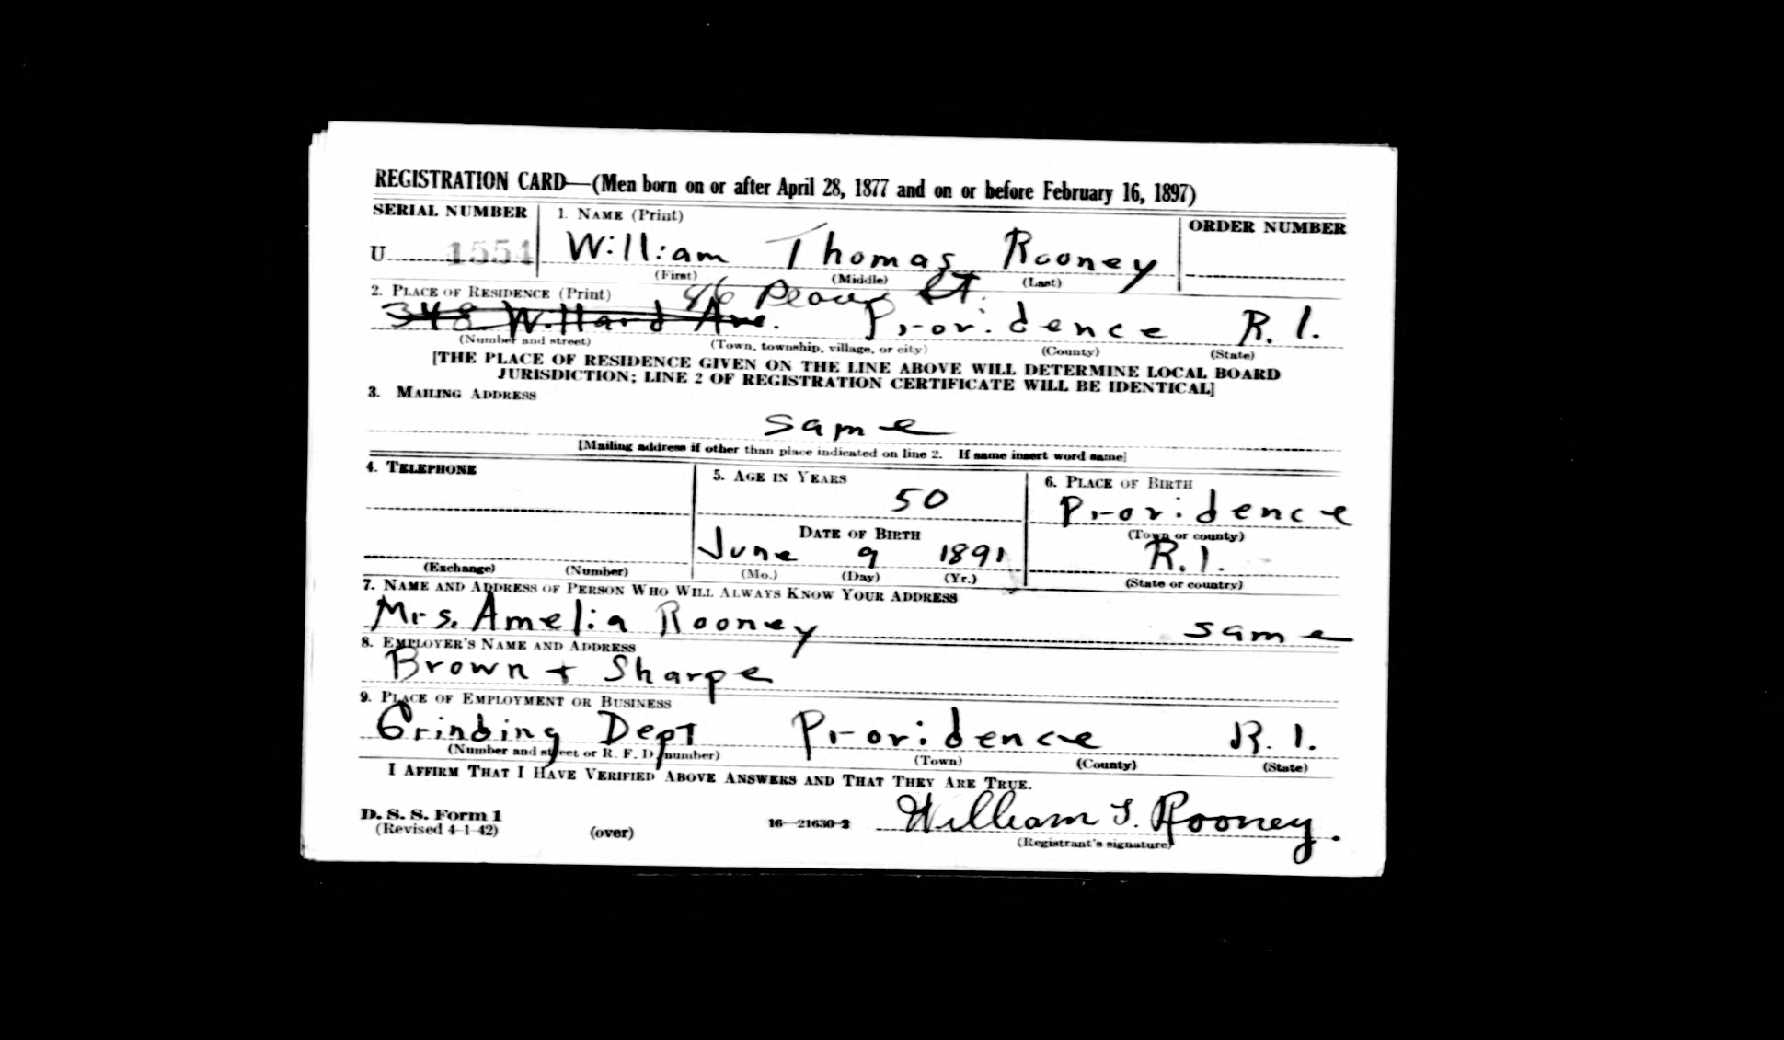 REGISTRATION CARD—(Men born on or after April 28, 1877 and on or before February 16, 1897)
SERIAL NUMBER
1. NAME (Print)
ORDER NUMBER
U 1554
William Thomas Rooney
(First) (Middle) (Last)
2. PLACE OF RESIDENCE (Print)
86 St.
348 Willard Ave. Providence R.I.
(Number and street) (Town, township, village, or city) (County) (State)
[THE PLACE OF RESIDENCE GIVEN ON THE LINE ABOVE WILL DETERMINE LOCAL BOARD
JURISDICTION; LINE 2 OF REGISTRATION CERTIFICATE WILL BE IDENTICAL]
3. MAILING ADDRESS
Same
[Mailing address if other than place indicated on line 2. If same insert word same]
4. TELEPHONE
(Exchange) (Number)
5. AGE IN YEARS
50
DATE OF BIRTH
June 9 1891
(Mo.) (Day) (Yr.)
6. PLACE OF BIRTH
Providence
(Town or county)
R.I.
(State or country)
7. NAME AND ADDRESS OF PERSON WHO WILL ALWAYS KNOW YOUR ADDRESS
Mrs. Amelia Rooney same
8. EMPLOYER'S NAME AND ADDRESS
Brown + Sharpe
9. PLACE OF EMPLOYMENT OR BUSINESS
Grinding Dept Providence R.I.
(Number and street or R. F. D. number) (Town) (County) (State)
I AFFIRM THAT I HAVE VERIFIED ABOVE ANSWERS AND THAT THEY ARE TRUE.
D. S. S. Form 1
(Revised 4-1-42)
(over)
16—21630-2
William T. Rooney.
(Registrant's signature)